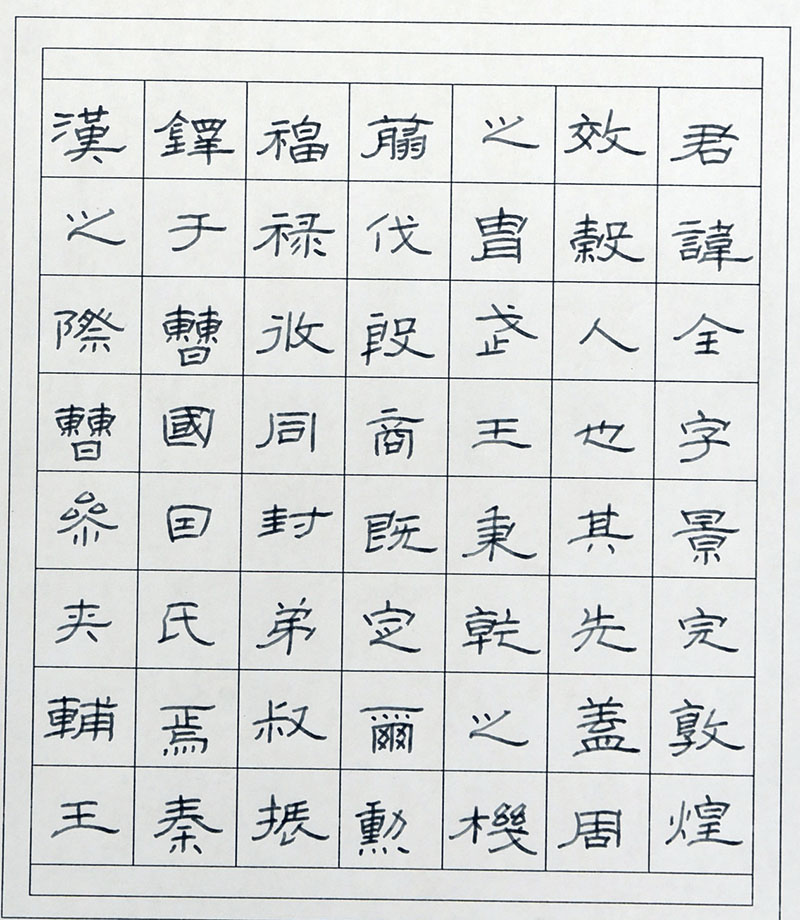 君諱全字景完敦煌
效穀人也其先蓋周
之胄武王秉乾之機
翦伐殷商既定爾勲
福禄攸同封弟叔振
鐸于曹國因氏焉秦
漢之際曹參夾輔王